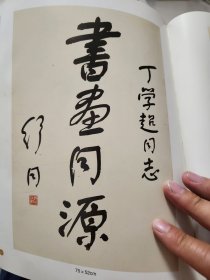 丁学超同志
書畫同源
舒同
75×52cm